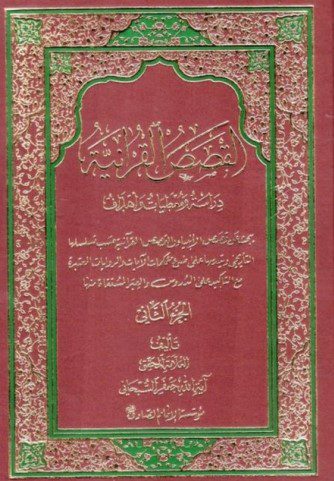 القصص القرآنية
دراسة ومعطيات وأهداف
يبحث عن قصص الأنبياء والقصص القرآنية حسب تسلسلها
التاريخي ويدرسها على ضوء محكمات الآيات والروايات المعتبرة
مع التأكيد على الدروس والعبر المستفادة منها
الجزء الثاني
تأليف
العلامة المحقق
آية الله جعفر السبحاني
مؤسسة الإمام الصادق